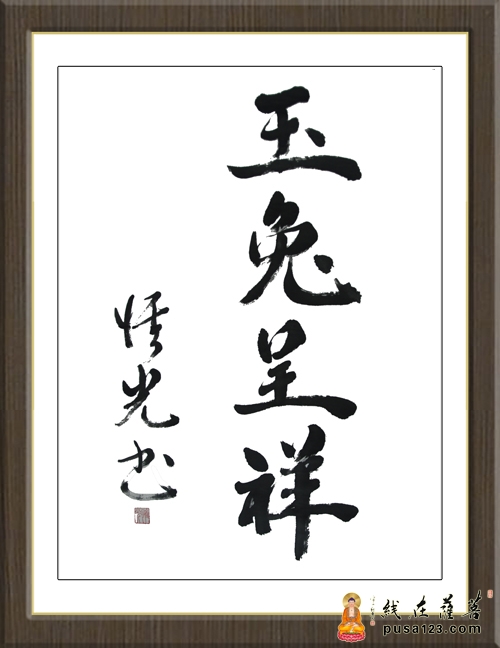 玉兔呈祥
悟光书
菩薩在线
pusa123.com